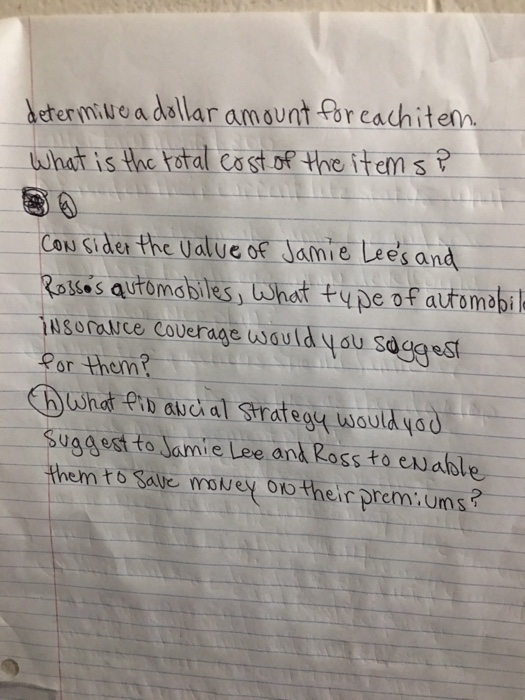 determine a dollar amount for each item.
What is the total cost of the items?
g
Consider the value of Jamie Lee's and
Ross's automobiles, What type of automobile
insurance coverage would you suggest
for them?
h What financial strategy would you
suggest to Jamie Lee and Ross to enable
them to save money on their premiums?